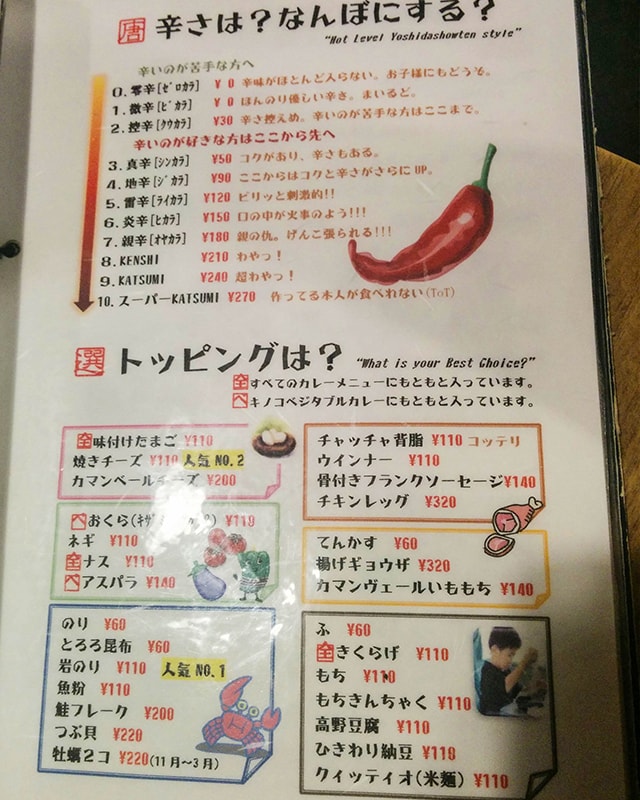 唐 辛さは？なんぼにする？
"Hot Level Yoshidashowten style"
辛いのが苦手な方へ
0.零辛[ゼロカラ] ¥0 辛味がほとんど入らない。お子様にもどうぞ。
1.微辛[ビカラ] ¥0 ほんのり優しい辛さ。まいるど。
2.控辛[クウカラ] ¥30 辛さ控えめ。辛いのが苦手な方はここまで。
辛いのが好きな方はここから先へ
3.真辛[シンカラ] ¥50 コクがあり、辛さもある。
4.地辛[ジカラ] ¥90 ここからはコクと辛さがさらにUP。
5.雷辛[ライカラ] ¥120 ピリッと刺激的!!
6.炎辛[ヒカラ] ¥150 口の中が火事のよう!!!
7.親辛[オヤカラ] ¥180 親の仇。げんこ張られる!!!
8.KENSHI ¥210 わやっ！
9.KATSUMI ¥240 超わやっ！
10.スーパーKATSUMI ¥270 作ってる本人が食べれない(ToT)
選 トッピングは？ "What is your Best Choice?"
全すべてのカレーメニューにもともと入っています。
ベキノコベジタブルカレーにもともと入っています。
全味付けたまご ¥110
焼きチーズ ¥110 人気NO.2
カマンベールチーズ ¥200
ベおくら ¥110
ネギ ¥110
全ナス ¥110
ベアスパラ ¥140
のり ¥60
とろろ昆布 ¥60
岩のり ¥110 人気NO.1
魚粉 ¥110
鮭フレーク ¥200
つぶ貝 ¥220
牡蠣2コ ¥220(11月～3月)
チャッチャ背脂 ¥110 コッテリ
ウインナー ¥110
骨付きフランクソーセージ¥140
チキンレッグ ¥320
てんかす ¥60
揚げギョウザ ¥320
カマンヴェールいももち ¥140
ふ ¥60
全きくらげ ¥110
もち ¥110
もちきんちゃく ¥110
高野豆腐 ¥110
ひきわり納豆 ¥110
クィッティオ(米麺) ¥110